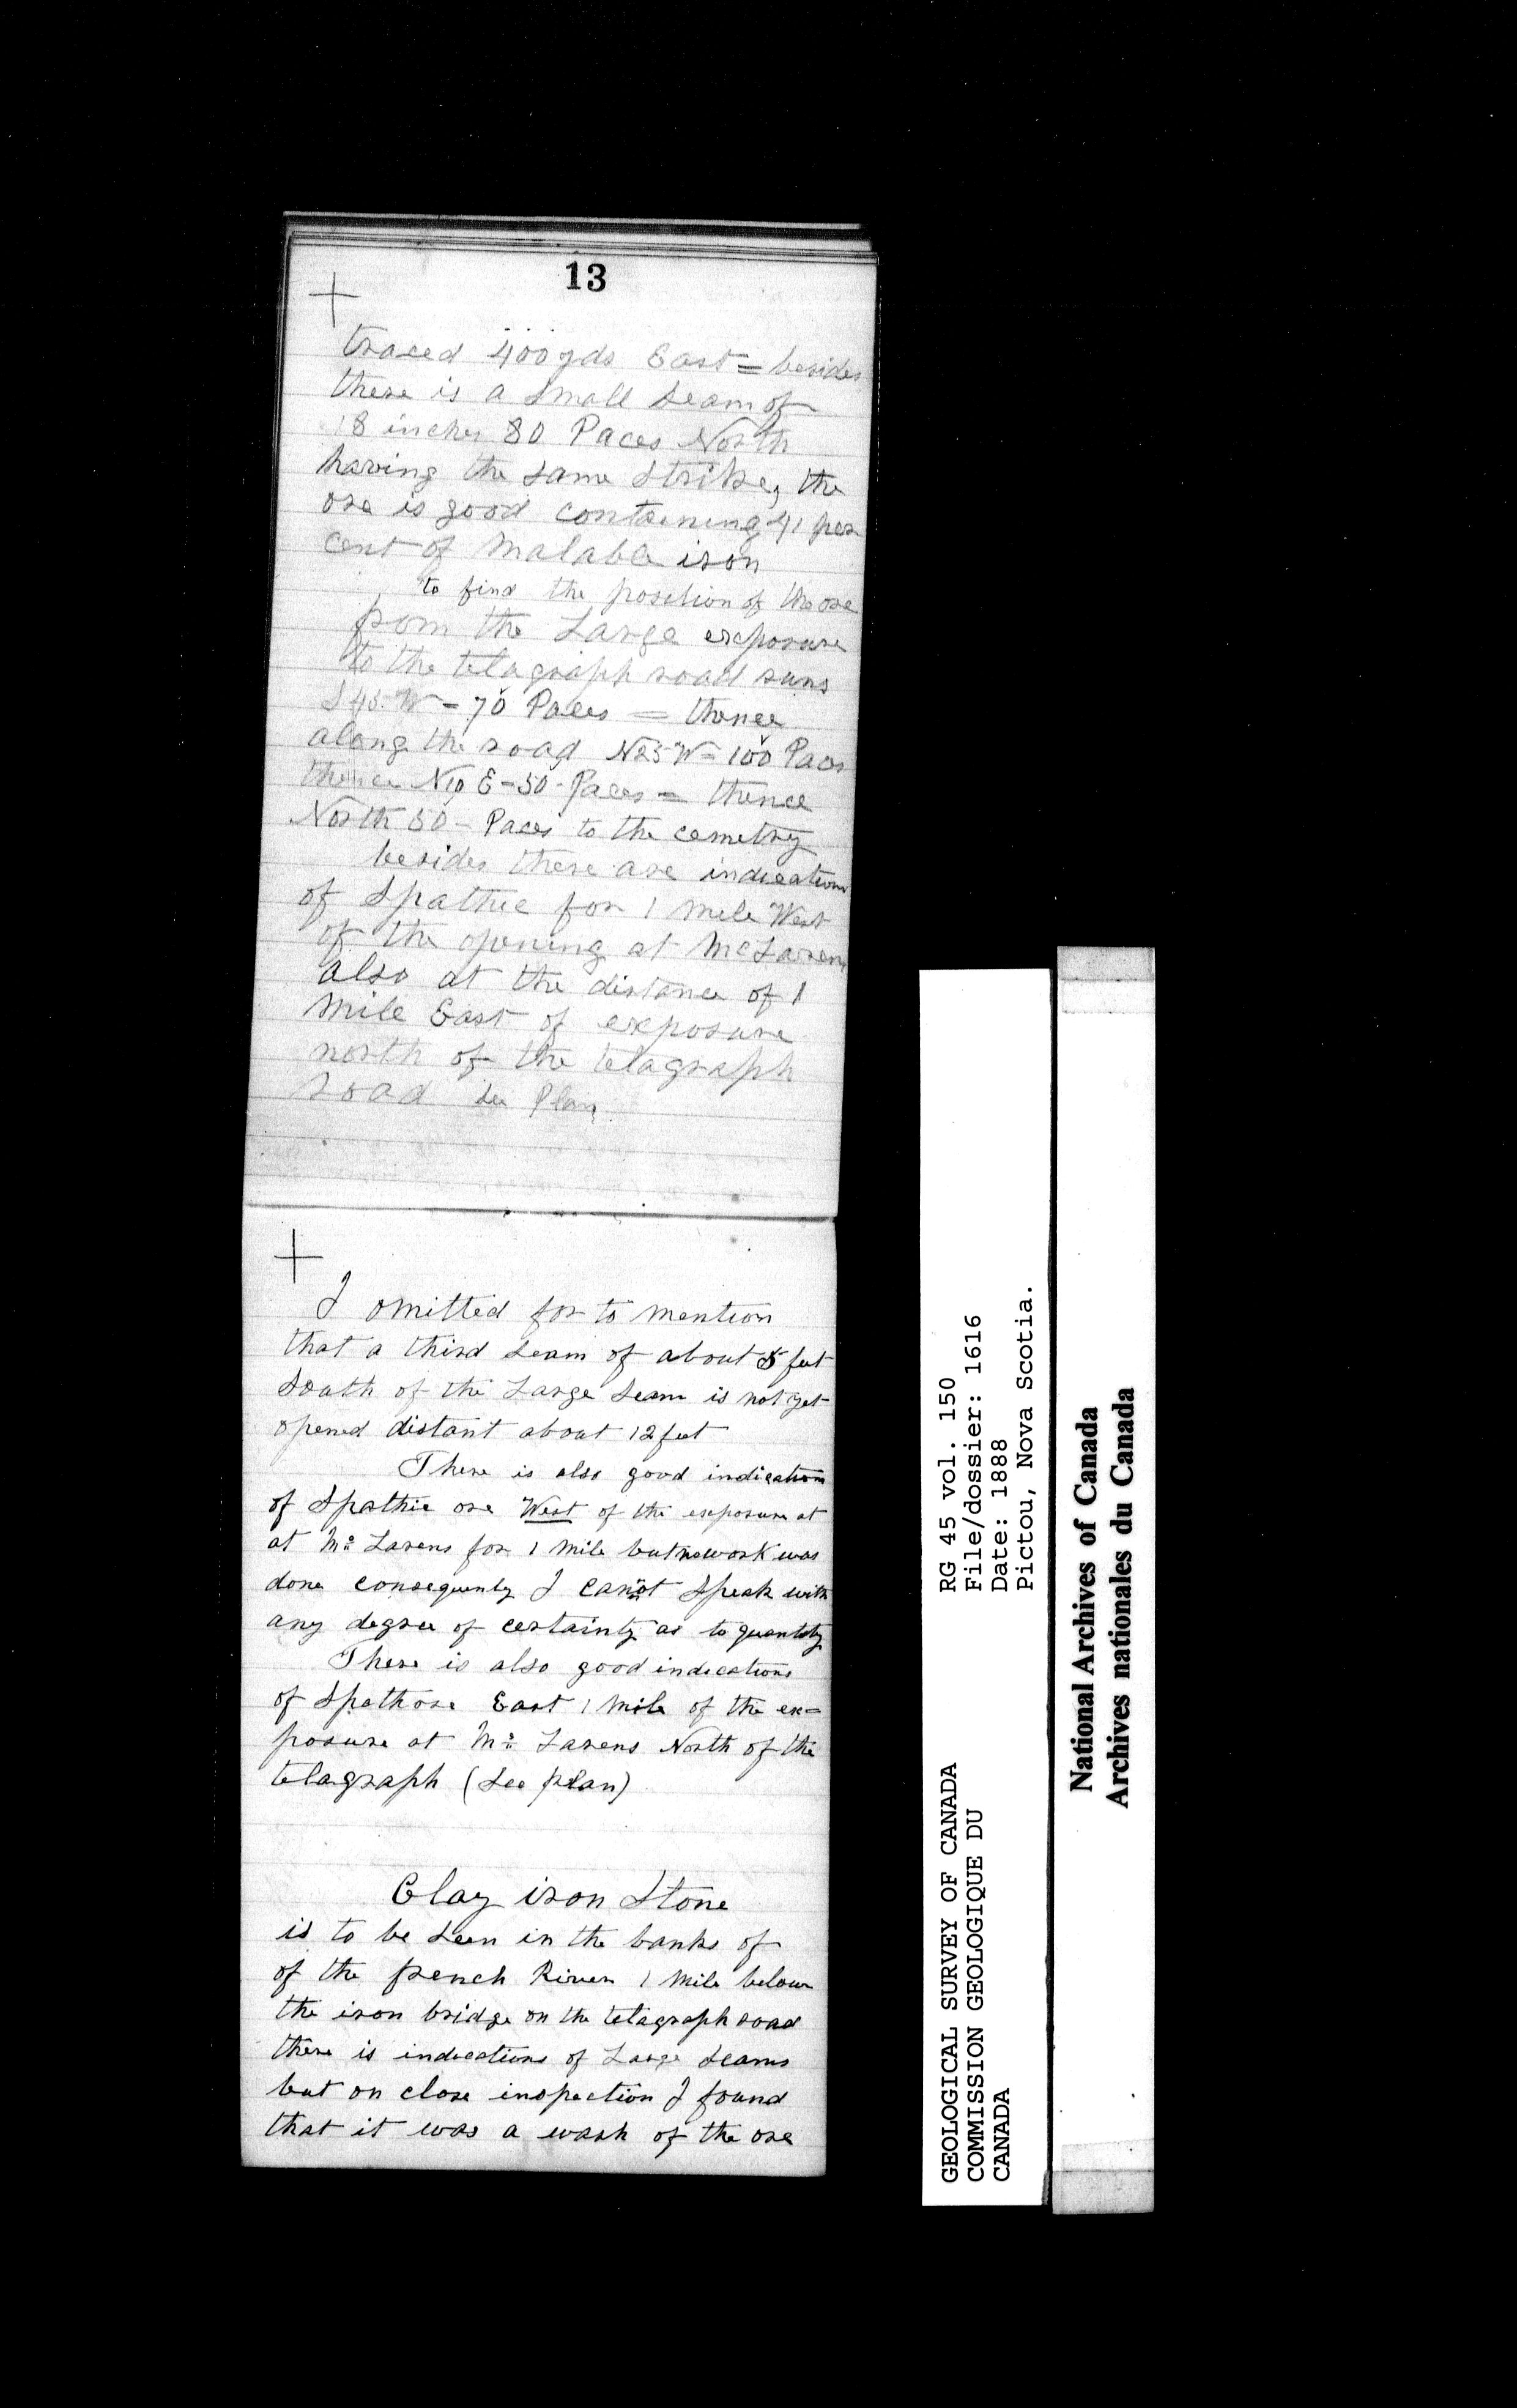 13
traced 400 yds East = besides
there is a Small Seam of
18 inches 80 Paces North
having the Same Strike, the
ore is good containing 41 per
cent of Malable iron
to find the position of the ore
from the Large exposure
to the telagraph road runs
S 45 W = 70 Paces = thence
along the road N25 W = 100 Paces
thence N10 E = 50 - Paces = thence
North 50 - Paces to the cemetry
besides there are indications
of Spathic for 1 Mile West
of the opening at McLarens
also at the distance of 1
Mile East of exposure
north of the telagraph
road See Plan
I omitted for to mention
that a third Seam of about 5 feet
South of the Large Seam is not yet
opened distant about 12 feet
There is also good indication
of Spathic ore West of the exposure at
at Mc Larens for 1 Mile but no work was
done consequenly I canot Speak with
any degree of certainty as to quantity
There is also good indications
of Spathose East 1 Mile of the ex=
posure at Mc Larens North of the
telagraph (See plan)
Clay iron Stone
is to be Seen in the banks of
of the french River 1 Mile below
the iron bridge on the telagraph road
there is indications of Large Seams
but on close inspection I found
that it was a wash of the ore
GEOLOGICAL SURVEY OF CANADA
COMMISSION GEOLOGIQUE DU
CANADA
RG 45 vol. 150
File/dossier: 1616
Date: 1888
Pictou, Nova Scotia.
National Archives of Canada
Archives nationales du Canada